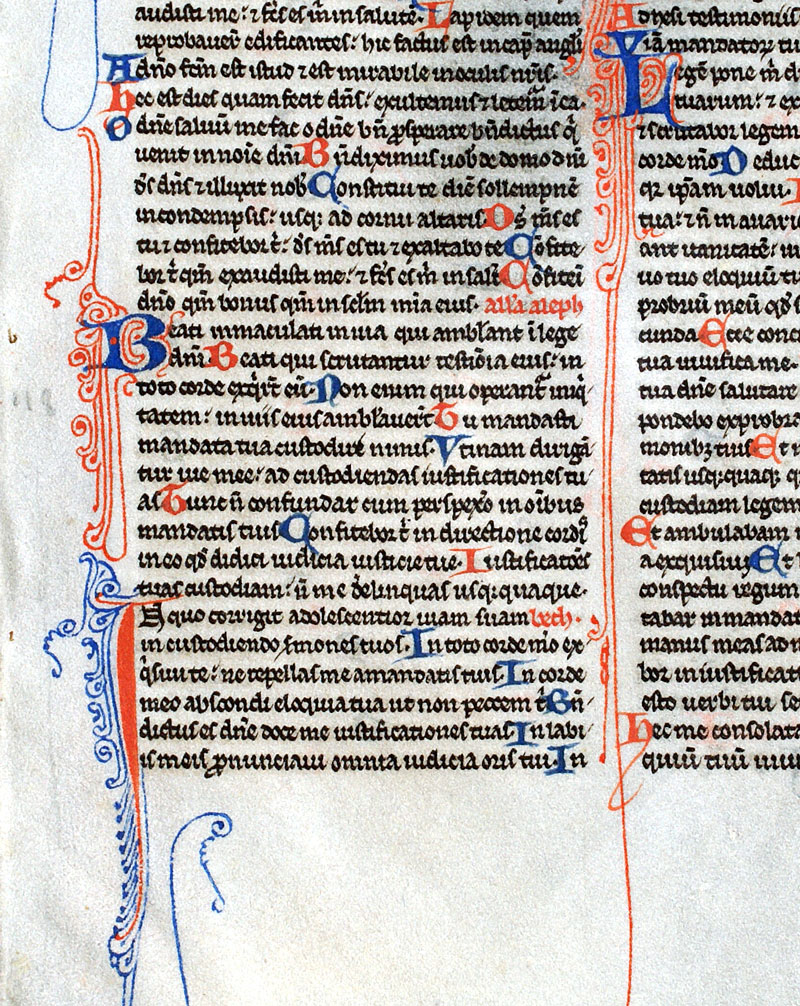 audisti me: ⁊ fc̄s es m̄ in salutē. Lapidem quem
reprobauer̄ edificantes: hic factus est in cap̄ anguli
A dn̄o fc̄m est istud ⁊ est mirabile in oculis nr̄is.
hec est dies quam fecit dn̄s: exultemus ⁊ letem̄ i ea.
O dn̄e saluū me fac o dn̄e bn̄ ꝓsperare bn̄dictus q̇
uenit in noīe dn̄i Bn̄diximus uob̄ de domo dn̄i
d̄s dn̄s ⁊ illuxit nob̄ Constituite diē sollempnē
in condempsis: usq; ad cornu altaris. D̄s m̄s es
tu ⁊ confitebor t̄: d̄s m̄s es tu ⁊ exaltabo te Cōfite
bor t̄ qm̄ exaudisti me: ⁊ fc̄s es m̄ in salt̄ Cōfitem̄i
dn̄o qm̄ bonus qm̄ in sclm̄ mia eius. all'a aleph
Beati inmaculati in uia qui ambl'ant ī lege
dn̄i Beati qui scrutantur testiōia eius: in
toto corde exq̇rt̄ eū. Non enim qui operant̄ iniq̇
tatem: in uiis eius ambl'auer̄t Tu mandasti
mandata tua custodire nimis. Utinam dirigā
tur uie mee: ad custodiendas iustificationes tu
as Tunc n̄ confundar cum perspexo in oībus
mandatis tuis Confitebor t̄ in directione cord̄
in eo qd̄ didici iudicia iusticie tue. Iustificatōes
tuas custodiam: n̄ me d̄elinquas usq;quaque.
In quo corrigit adolescentior uiam suam beth.
in custodiendo s̄mones tuos. In toto corde m̄o ex
q̇siui te: ne repellas me a mandatis tuis. In corde
meo abscondi eloquia tua ut non peccem t̄ Bn̄
dictus es dn̄e doce me iustificationes tuas. In labi
is meis ꝓnunciaui omnia iudicia oris tui. In
Adhesi testimoniis
Viā mandatoꝝ tu
Legē pone m̄ d
tuarum: ⁊ ex
⁊ scrutabor legem
corde m̄o Deduc
qꝛ ip̄am uolui. I
tua: ⁊ n̄ in auari
ant uanitatē: in
uo tuo eloquiū t
probriū meū qd̄ s
cunda Ecce conc
tua uiuifica me.
tua dn̄e salutare
pondebo exprobra
monibꝫ tuis Et n
tatis usq;quaq; q
custodiam legem
Et ambulabam i
a exquisiui Et l
conspectu regum
tabar in mandat
manus meas ad m
bor in iustificati
esto uerbi tui se
Hec me consolata
quiū tuū uiui